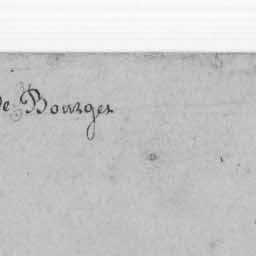 de Bourges